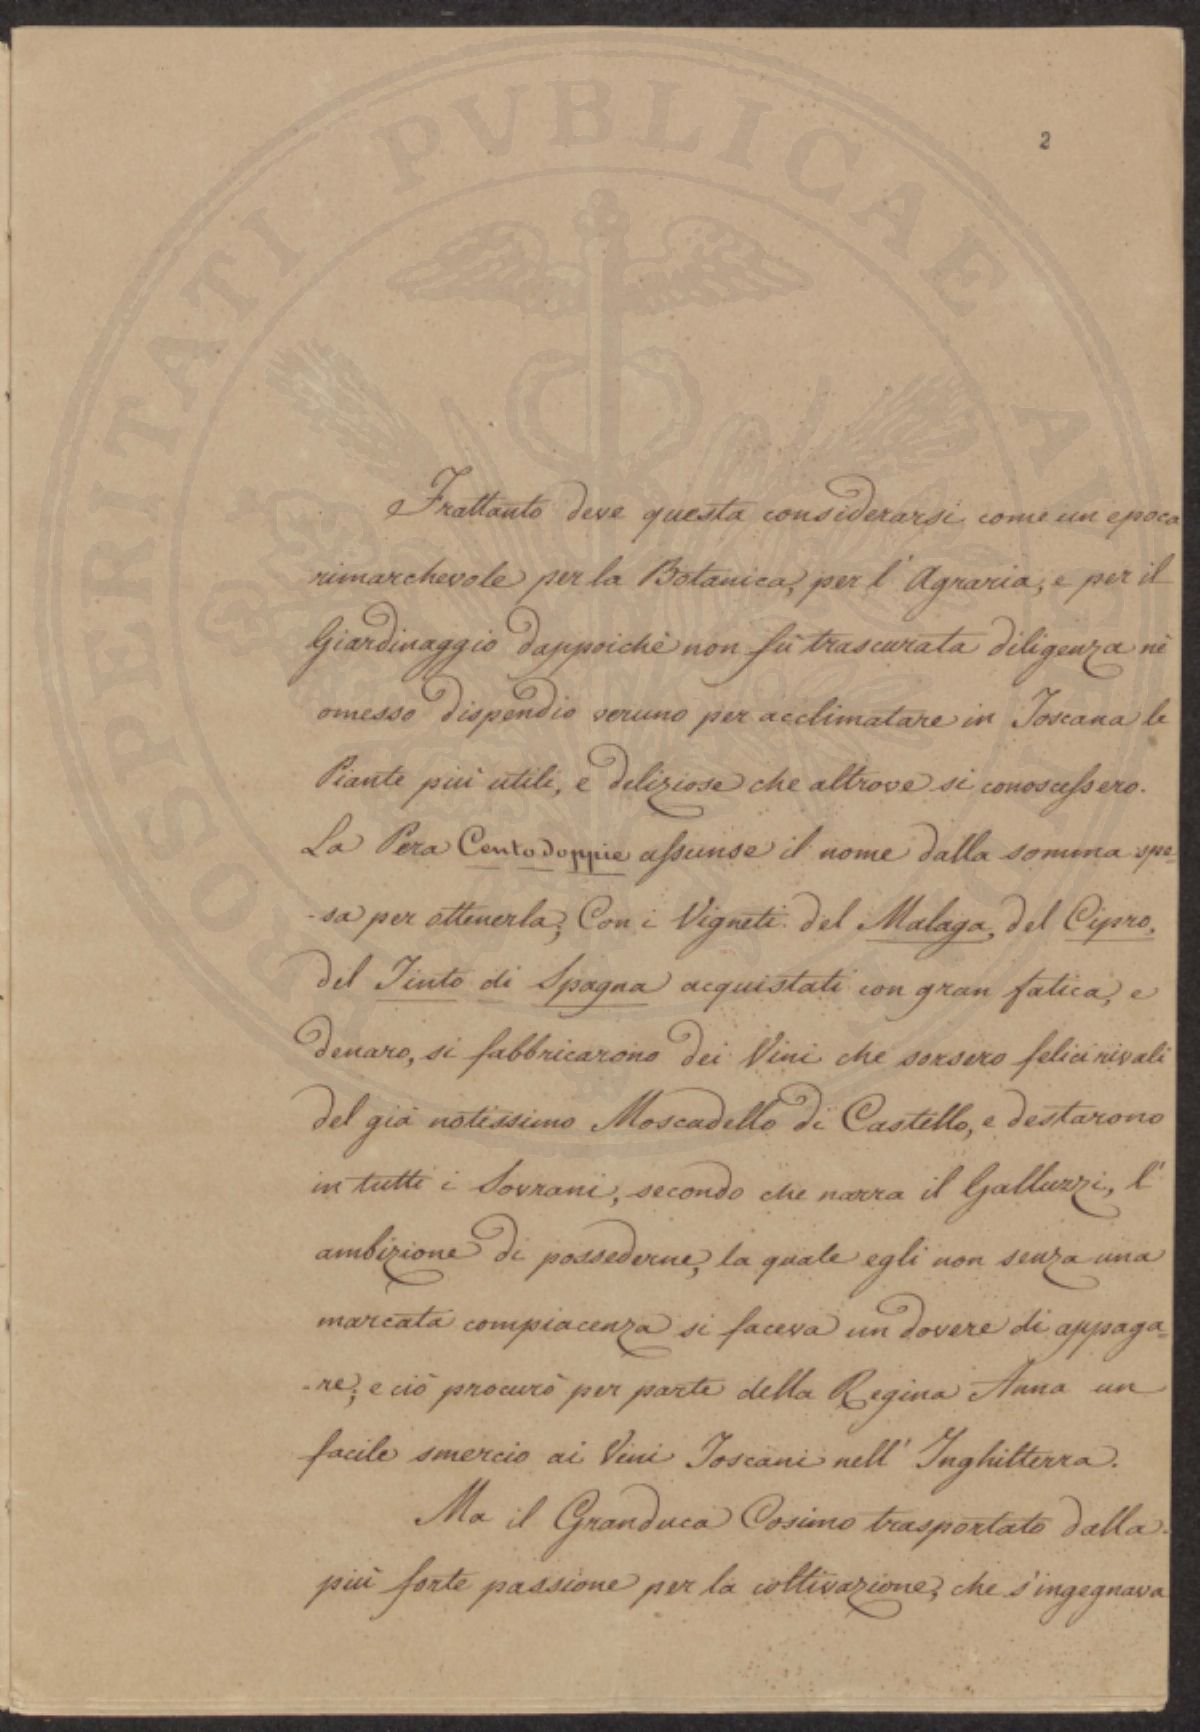 PROSPERITATI PVBLICAE AVGENDAE
2
Frattanto deve questa considerarsi come un epoca
rimarchevole per la Botanica, per l' Agraria, e per il
Giardinaggio dappoichè non fù trascurata diligenza nè
omesso dispendio veruno per acclimatare in Toscana le
Piante più utili, e deliziose che altrove si conoscessero.
La Pera Centodoppie assunse il nome dalla somma spe=
-sa per ottenerla; Con i Vigneti del Malaga, del Cipro,
del Tinto di Spagna acquistati con gran fatica, e
denaro, si fabbricarono dei Vini che sorsero felici rivali
del già notissimo Moscadello di Castello, e destarono
in tutti i Sovrani, secondo che narra il Galluzzi, l'
ambizione di possederne, la quale egli non senza una
marcata compiacenza si faceva un dovere di appaga=
-re; e ciò procurò per parte della Regina Anna un
facile smercio ai Vini Toscani nell' Inghilterra.
Ma il Granduca Cosimo trasportato dalla
più forte passione per la coltivazione, che s'ingegnava